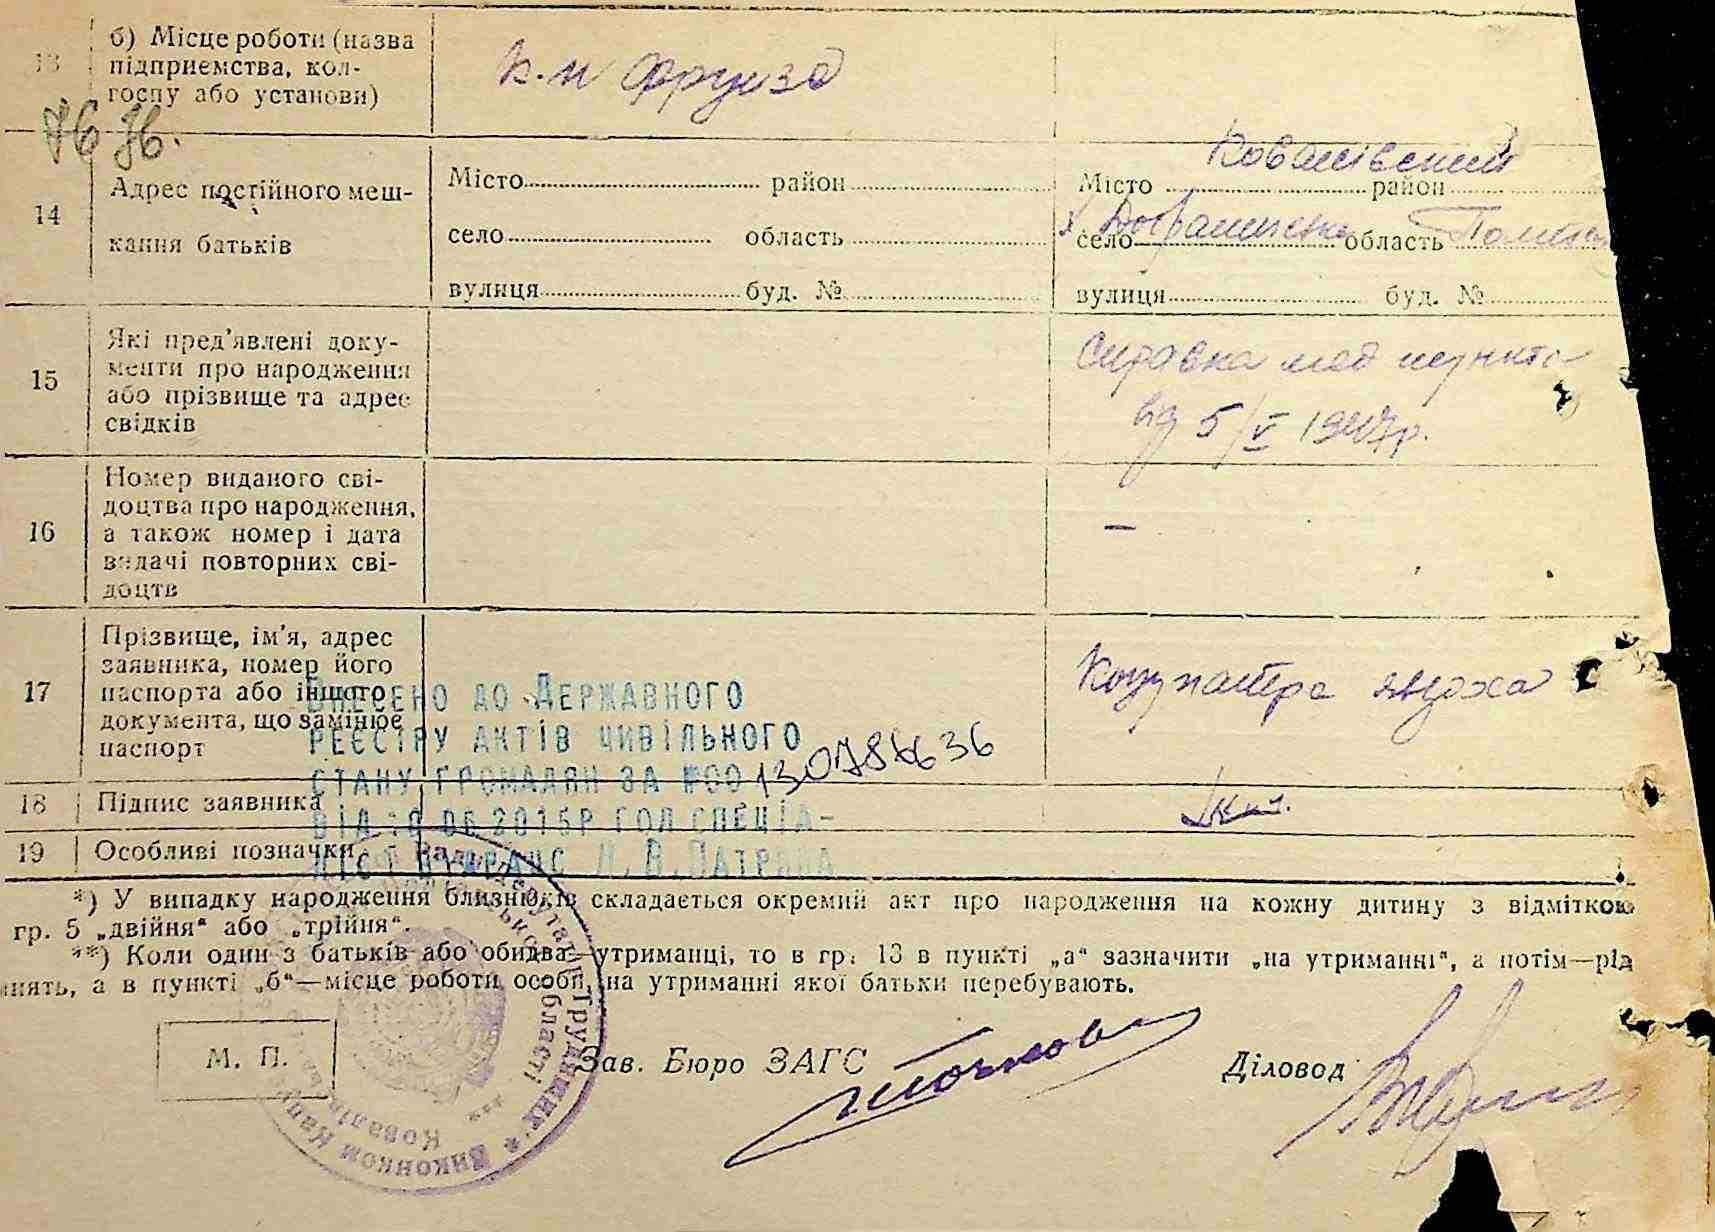 13 б) Місце роботи (назва
підприємства, кол-
госпу або установи)
к-п Фрунзе
76 76.
14 Адрес постійного меш-
кання батьків
Місто район
село область
вулиця буд. №
Місто район
село область
вулиця буд. №
15 Які пред'явлені доку-
менти про народження
або прізвище та адрес
свідків
Справка мед пункта
від 5/V 1947р.
16 Номер виданого сві-
доцтва про народження,
а також номер і дата
видачі повторних сві-
доцтв
–
17 Прізвище, ім'я, адрес
заявника, номер його
паспорта або іншого
документа, що замінює
паспорт
ВНЕСЕНО ДО ДЕРЖАВНОГО
РЕЄСТРУ АКТІВ ЦИВІЛЬНОГО
СТАНУ ГРОМАДЯН ЗА №00
ВІД 06 2015Р ГОЛ СПЕЦІА-
18 Підпис заявника
19 Особливі позначки
*) У випадку народження близнюків складається окремий акт про народження на кожну дитину з відміткою
гр. 5 „двійня“ або „трійня“.
**) Коли один з батьків або обидва—утриманці, то в гр. 13 в пункті „а“ зазначити „на утриманні“, а потім—рід
нять, а в пункті „б“—місце роботи особи, на утриманні якої батьки перебувають.
М. П.
Зав. Бюро ЗАГС
Діловод